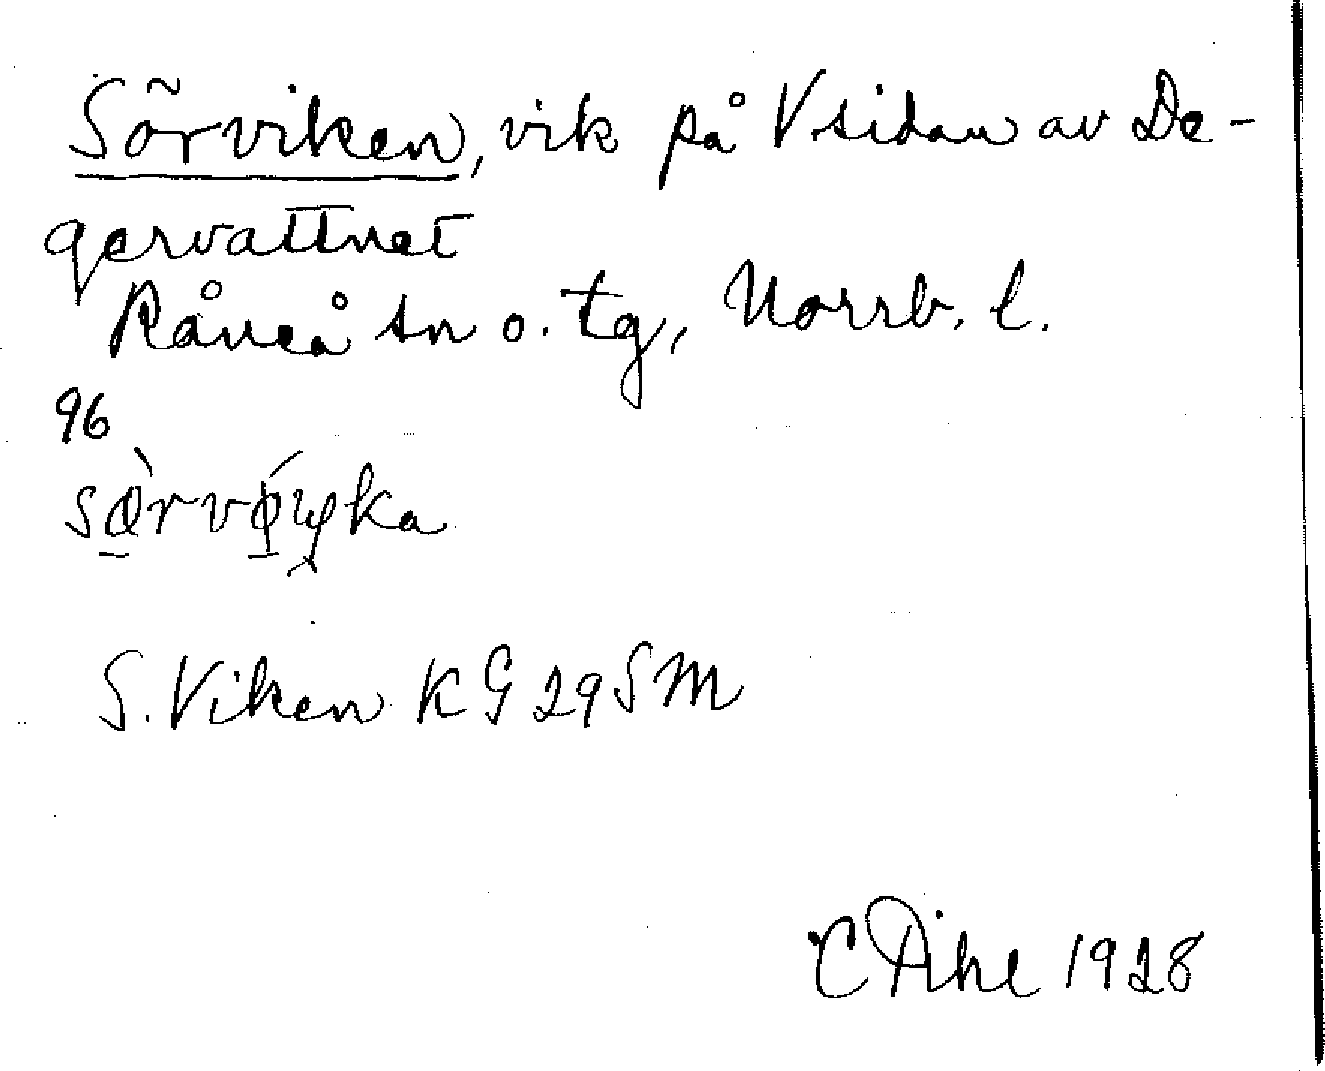 Sörviken, vik på V.sidan av De-
gervattnet
Råneå sn o. tg, Norrb. l.
96
S. Viken KG 29 SM
C Pihl 1928